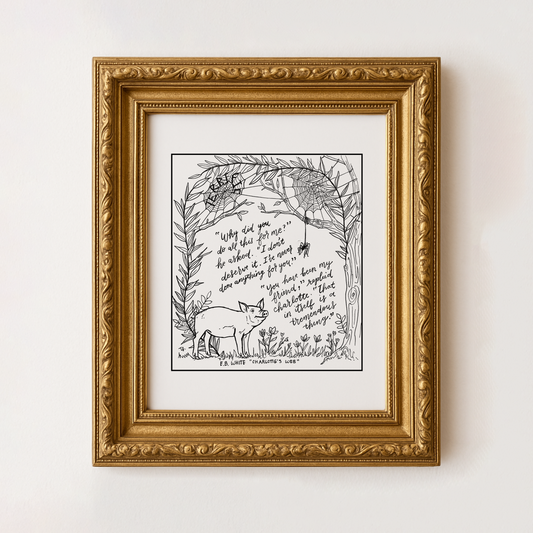 TERRIFIC
"Why did you
do all this for me?"
he asked. "I don't
deserve it. I've never
done anything for you."
"you have been my
friend," replied
charlotte "that
in itself is a
tremendous
thing."
E.B. WHITE "CHARLOTTE'S WEB"